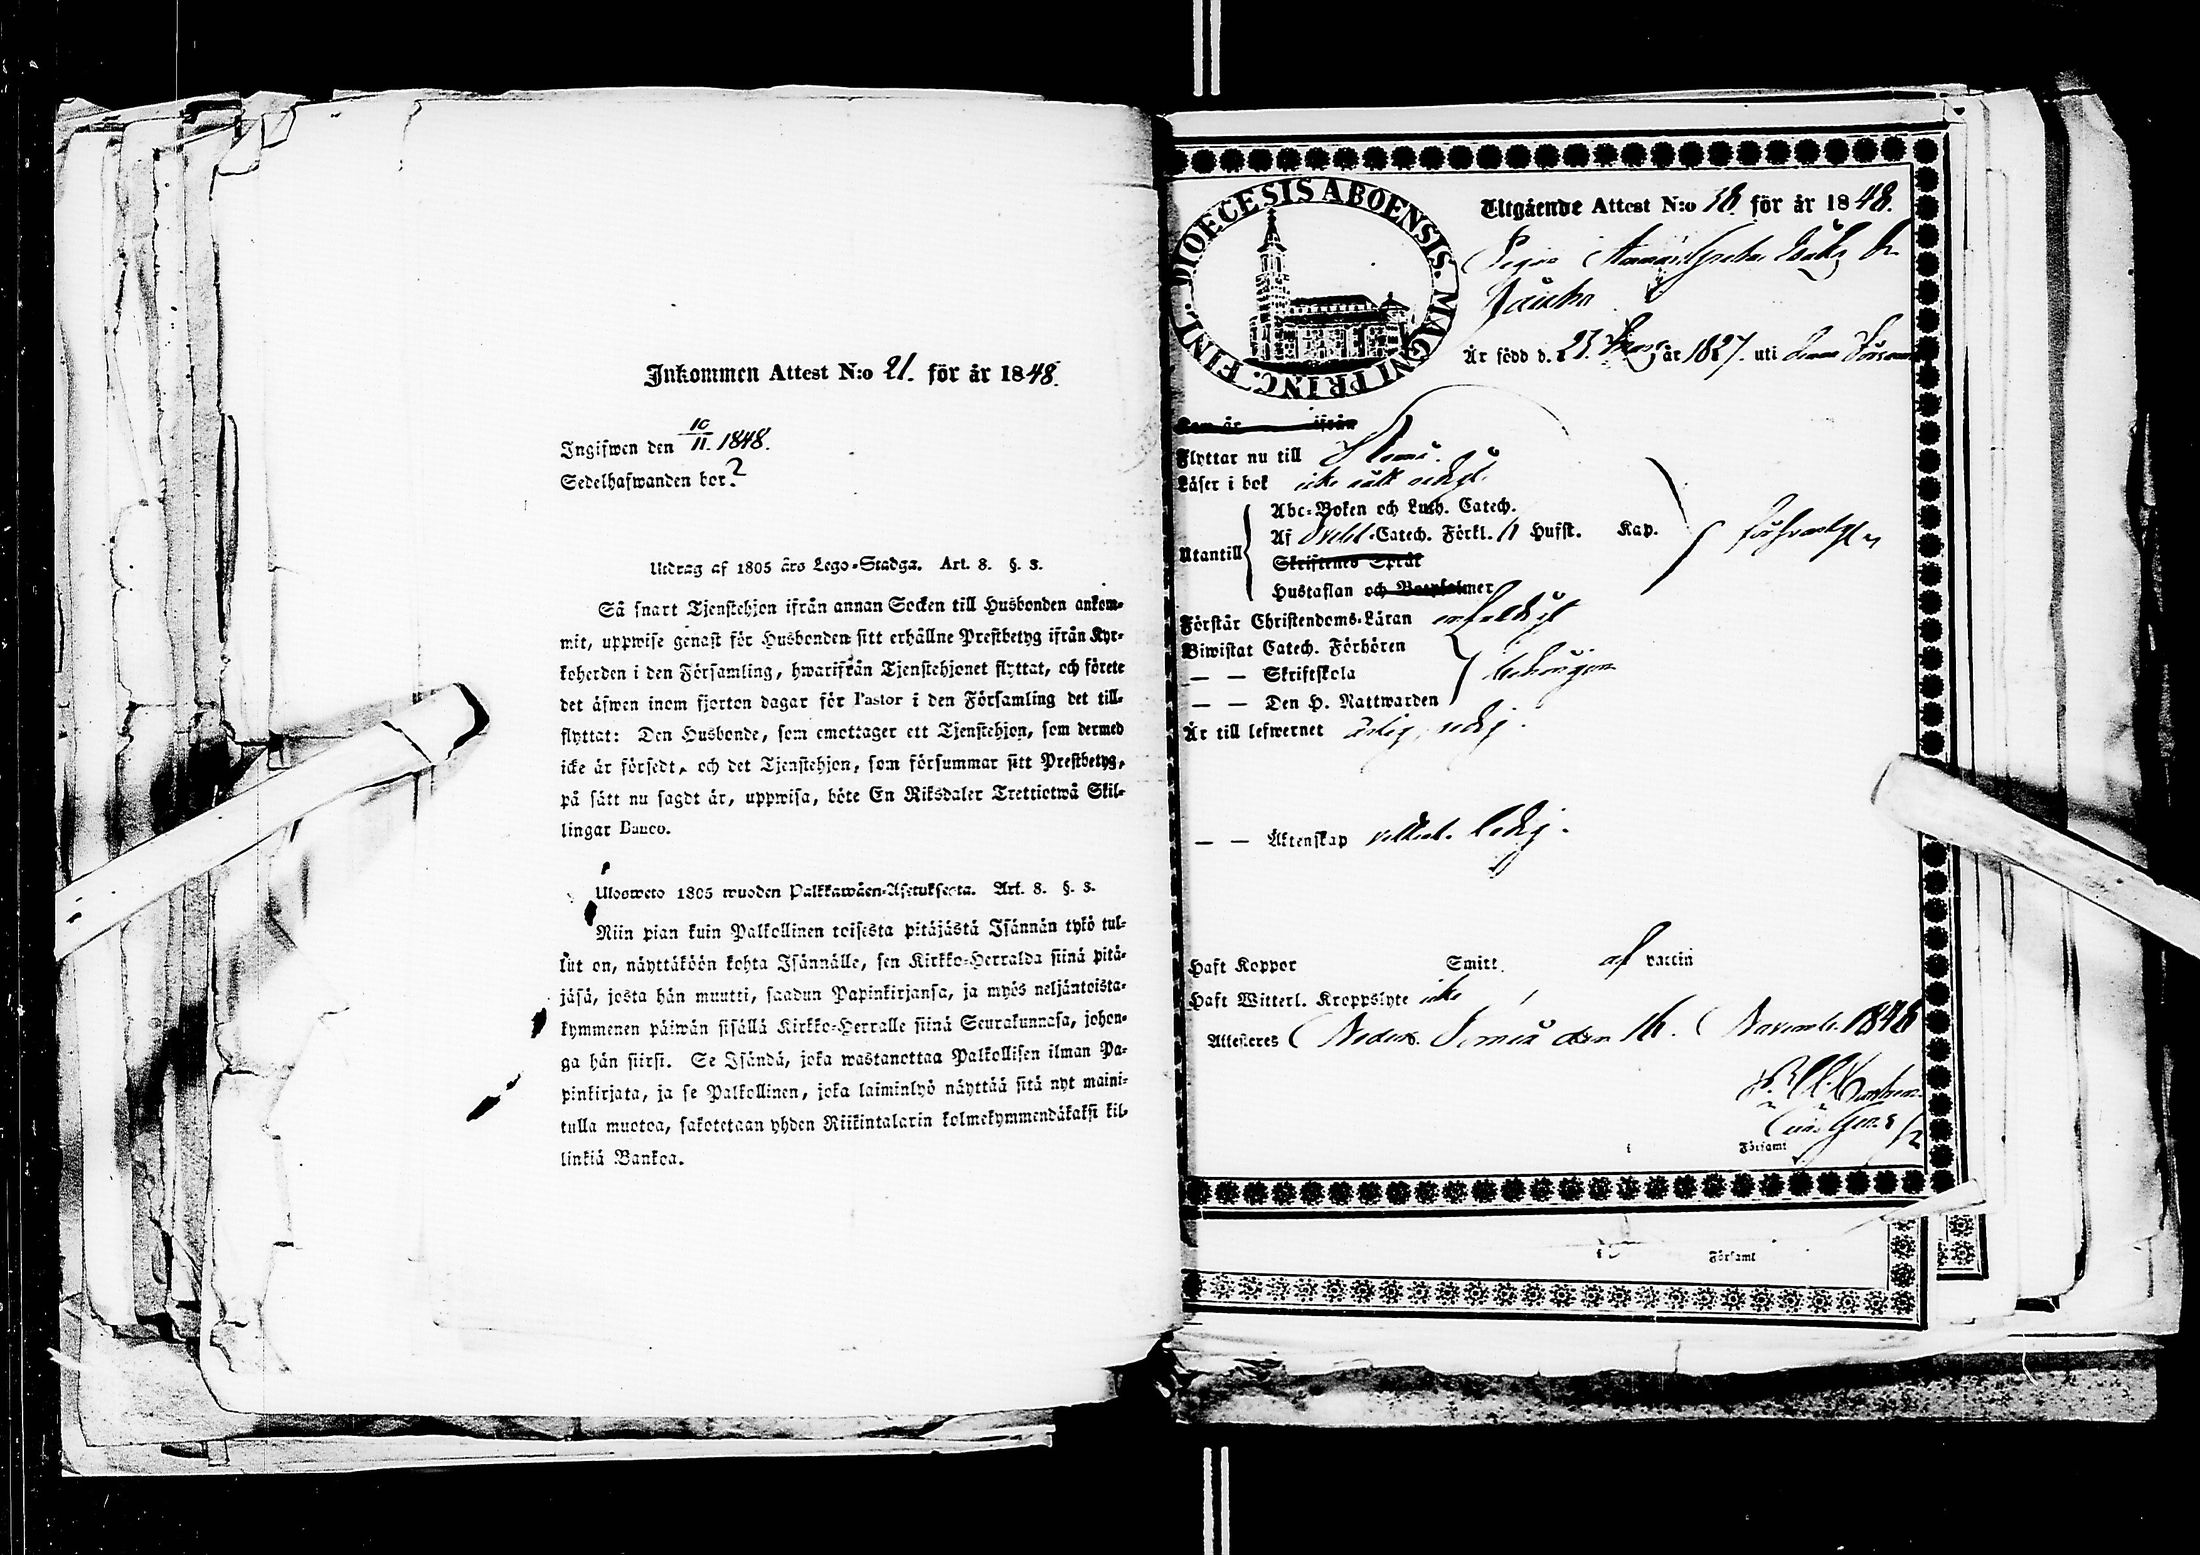 Inkommen Attest N:o 21. för år 1848.
Ingifwen den 10/11. 1848.
Sedelhafwanden bor?
Utdrag af 1805 års Lego-Stadga. Art. 8. §. 3.
Så snart Tjenstehjon ifrån annan Socken till Husbonden ankom-
mit, uppwise genast för Husbonden sitt erhållne Prestbetyg ifrån Kyr-
koherden i den Församling, hwarifrån Tjenstehjonet flyttat, och förete
det äfwen inom fjorton dagar för Pastor i den Församling det till-
flyttat: Den Husbonde, som emottager ett Tjenstehjon, som dermed
icke är försedt, och det Tjenstehjon, som försummar sitt Prestbetyg,
på sätt nu sagdt är, uppwisa, böte En Riksdaler Trettiotwå Skil-
lingar Banco.
Ulosweto 1805 wuoden Palkkawäen-Asetuksesta. Art. 8. §. 3.
Niin pian kuin Palkollinen toisesta pitäjästä Isännän tykö tul-
lut on, näyttäköön kohta Isännälle, sen Kirkko-Herralda siinä pitä-
jäsä, josta hän muutti, saadun Papinkirjansa, ja myös neljäntoista-
kymmenen päiwän sisällä Kirkko-Herralle siinä Seurakunnasa, johon-
ga hän siirsi. Se Isändä, joka wastanottaa Palkollisen ilman Pa-
pinkirjata, ja se Palkollinen, joka laiminlyö näyttää sitä nyt maini-
tulla muotoa, sakotetaan yhden Riikintalarin kolmekymmendäkaksi kil-
linkiä Bankoa.
DIOECESIS ABOENSIS. MAGNI PRINC. FINL.
Utgående Attest N:o 18. för år 1848.
Pigan Greta
Är född d. 23. år 1827. uti denna Församl
Kom år ifrån
Flyttar nu till
Läser i bok icke
Abc-Boken och Luth. Catech.
Utantill Af Catech. Förkl. 11 Hufst. Kap.
Skriftenes Språk
Hustaflan och Botpsalmer
Förstår Christendoms-Läran enfaldigt
Biwistat Catech. Förhören
— — Skriftskola behörigen
— — Den H. Nattwarden
Är till lefwernet ärlig,
— — Äktenskap ledig.
Haft Koppor Smitt. af vaccin
Haft Witterl. Kroppslyte icke
Attesteres Nedre Wemå den 16. Novemb. 1848
Församl
Församl